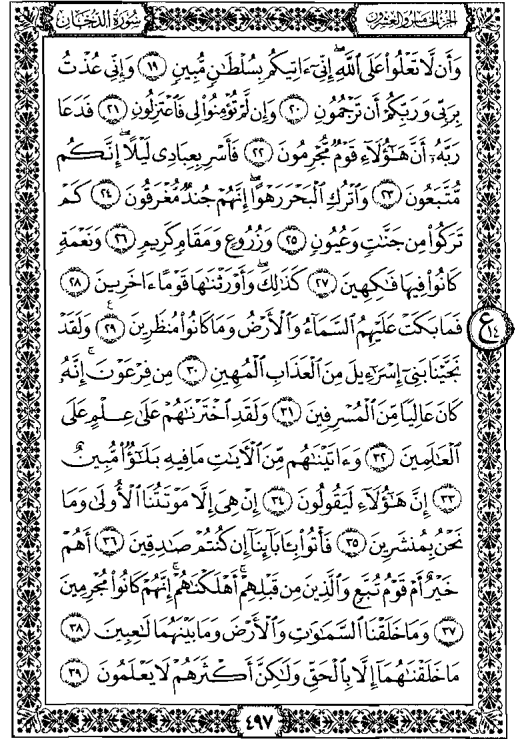 سُورَةُ الدُّخَانِ
الجُزْءُ الخَامِسُ وَالعِشْرُونَ
وَأَن لَّا تَعْلُوا۟ عَلَى ٱللَّهِ ۖ إِنِّىٓ ءَاتِيكُم بِسُلْطَـٰنٍ مُّبِينٍ ١٩ وَإِنِّى عُذْتُ
بِرَبِّى وَرَبِّكُمْ أَن تَرْجُمُونِ ٢٠ وَإِن لَّمْ تُؤْمِنُوا۟ لِى فَٱعْتَزِلُونِ ٢١ فَدَعَا
رَبَّهُۥٓ أَنَّ هَـٰٓؤُلَآءِ قَوْمٌ مُّجْرِمُونَ ٢٢ فَأَسْرِ بِعِبَادِى لَيْلًا إِنَّكُم
مُّتَّبَعُونَ ٢٣ وَٱتْرُكِ ٱلْبَحْرَ رَهْوًا ۖ إِنَّهُمْ جُندٌ مُّغْرَقُونَ ٢٤ كَمْ
تَرَكُوا۟ مِن جَنَّـٰتٍ وَعُيُونٍ ٢٥ وَزُرُوعٍ وَمَقَامٍ كَرِيمٍ ٢٦ وَنَعْمَةٍ
كَانُوا۟ فِيهَا فَـٰكِهِينَ ٢٧ كَذَٰلِكَ ۖ وَأَوْرَثْنَـٰهَا قَوْمًا ءَاخَرِينَ ٢٨
فَمَا بَكَتْ عَلَيْهِمُ ٱلسَّمَآءُ وَٱلْأَرْضُ وَمَا كَانُوا۟ مُنظَرِينَ ٢٩ وَلَقَدْ
نَجَّيْنَا بَنِىٓ إِسْرَٰٓءِيلَ مِنَ ٱلْعَذَابِ ٱلْمُهِينِ ٣٠ مِن فِرْعَوْنَ ۚ إِنَّهُۥ
كَانَ عَالِيًا مِّنَ ٱلْمُسْرِفِينَ ٣١ وَلَقَدِ ٱخْتَرْنَـٰهُمْ عَلَىٰ عِلْمٍ عَلَى
ٱلْعَـٰلَمِينَ ٣٢ وَءَاتَيْنَـٰهُم مِّنَ ٱلْـَٔايَـٰتِ مَا فِيهِ بَلَـٰٓؤٌا۟ مُّبِينٌ
٣٣ إِنَّ هَـٰٓؤُلَآءِ لَيَقُولُونَ ٣٤ إِنْ هِىَ إِلَّا مَوْتَتُنَا ٱلْأُولَىٰ وَمَا
نَحْنُ بِمُنشَرِينَ ٣٥ فَأْتُوا۟ بِـَٔابَآئِنَآ إِن كُنتُمْ صَـٰدِقِينَ ٣٦ أَهُمْ
خَيْرٌ أَمْ قَوْمُ تُبَّعٍ وَٱلَّذِينَ مِن قَبْلِهِمْ ۚ أَهْلَكْنَـٰهُمْ ۖ إِنَّهُمْ كَانُوا۟ مُجْرِمِينَ
٣٧ وَمَا خَلَقْنَا ٱلسَّمَـٰوَٰتِ وَٱلْأَرْضَ وَمَا بَيْنَهُمَا لَـٰعِبِينَ ٣٨
مَا خَلَقْنَـٰهُمَآ إِلَّا بِٱلْحَقِّ وَلَـٰكِنَّ أَكْثَرَهُمْ لَا يَعْلَمُونَ ٣٩
ع ١٤
٤٩٧